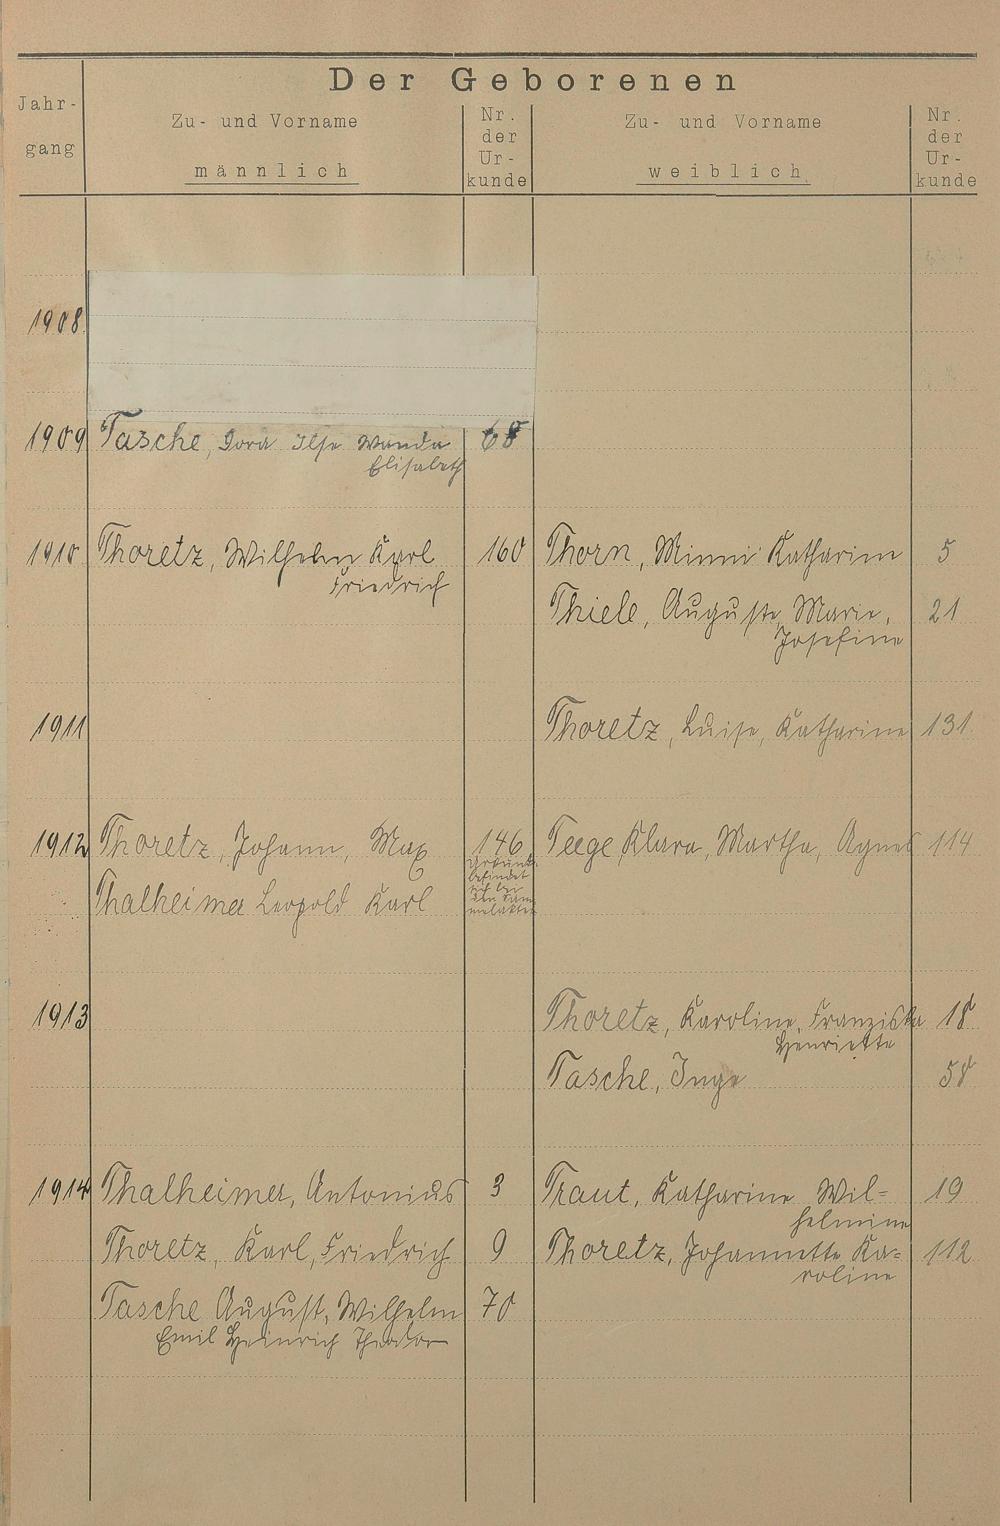 Der Geborenen
Jahr-
gang
Zu- und Vorname
männlich
Nr.
der
Ur-
kunde
Zu- und Vorname
weiblich
Nr.
der
Ur-
kunde
1908
1909 Tasche, Dora Ilse Wanda 68
Elisabeth
1910 Thoretz, Wilhelm Karl 160 Thorn, Minni Katharina 5
Friedrich
Thiele, Auguste, Marie, 21
Josefine
1911 Thoretz, Luise, Katharine 131
1912 Thoretz, Johann, Max 146 Teege, Klara, Martha, Agnes 114
Urkunde
befindet
sich bei
Thalheimer Leopold Karl den Sam
melakten
1913 Thoretz, Karoline, Franziska 18
Henriette
Tasche, Inge 58
1914 Thalheimer, Antonius 3 Traut, Katharine Wil= 19
helmine
Thoretz, Karl, Friedrich 9 Thoretz, Johannette Ka= 112
roline
Tasche August, Wilhelm 70
Emil Heinrich Theodor